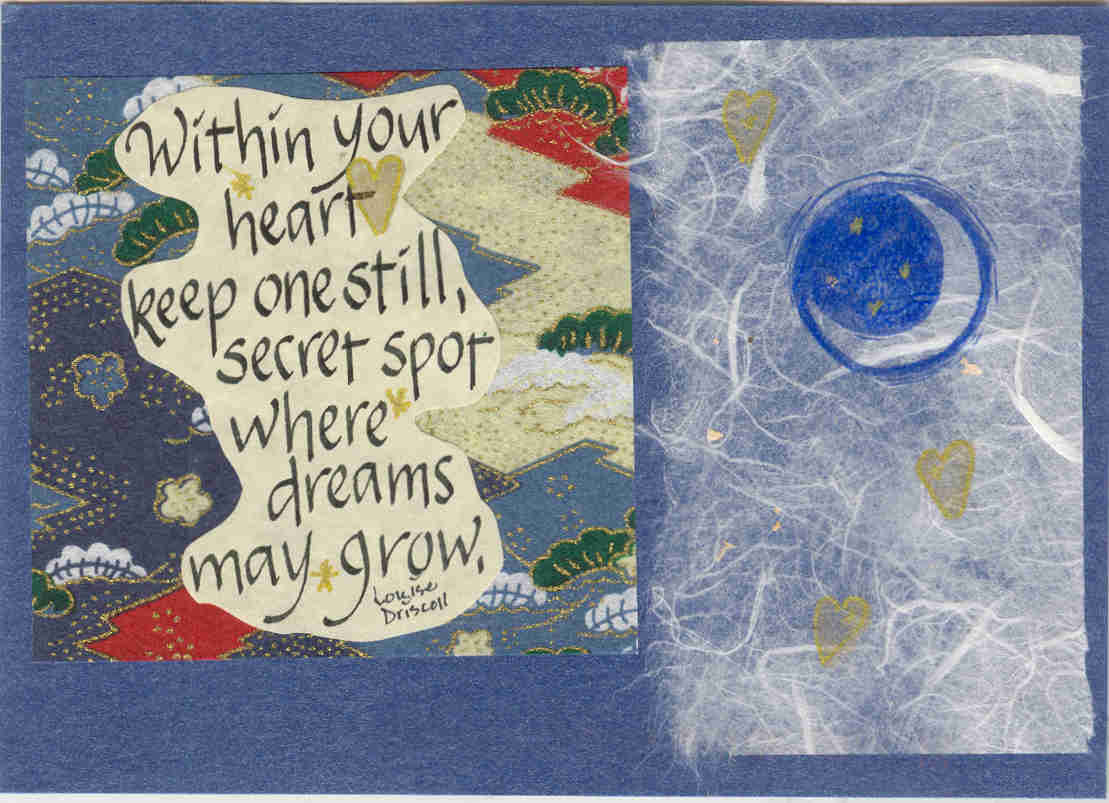 Within your
heart
keep one still,
secret spot
where
dreams
may grow.
Louise
Driscoll